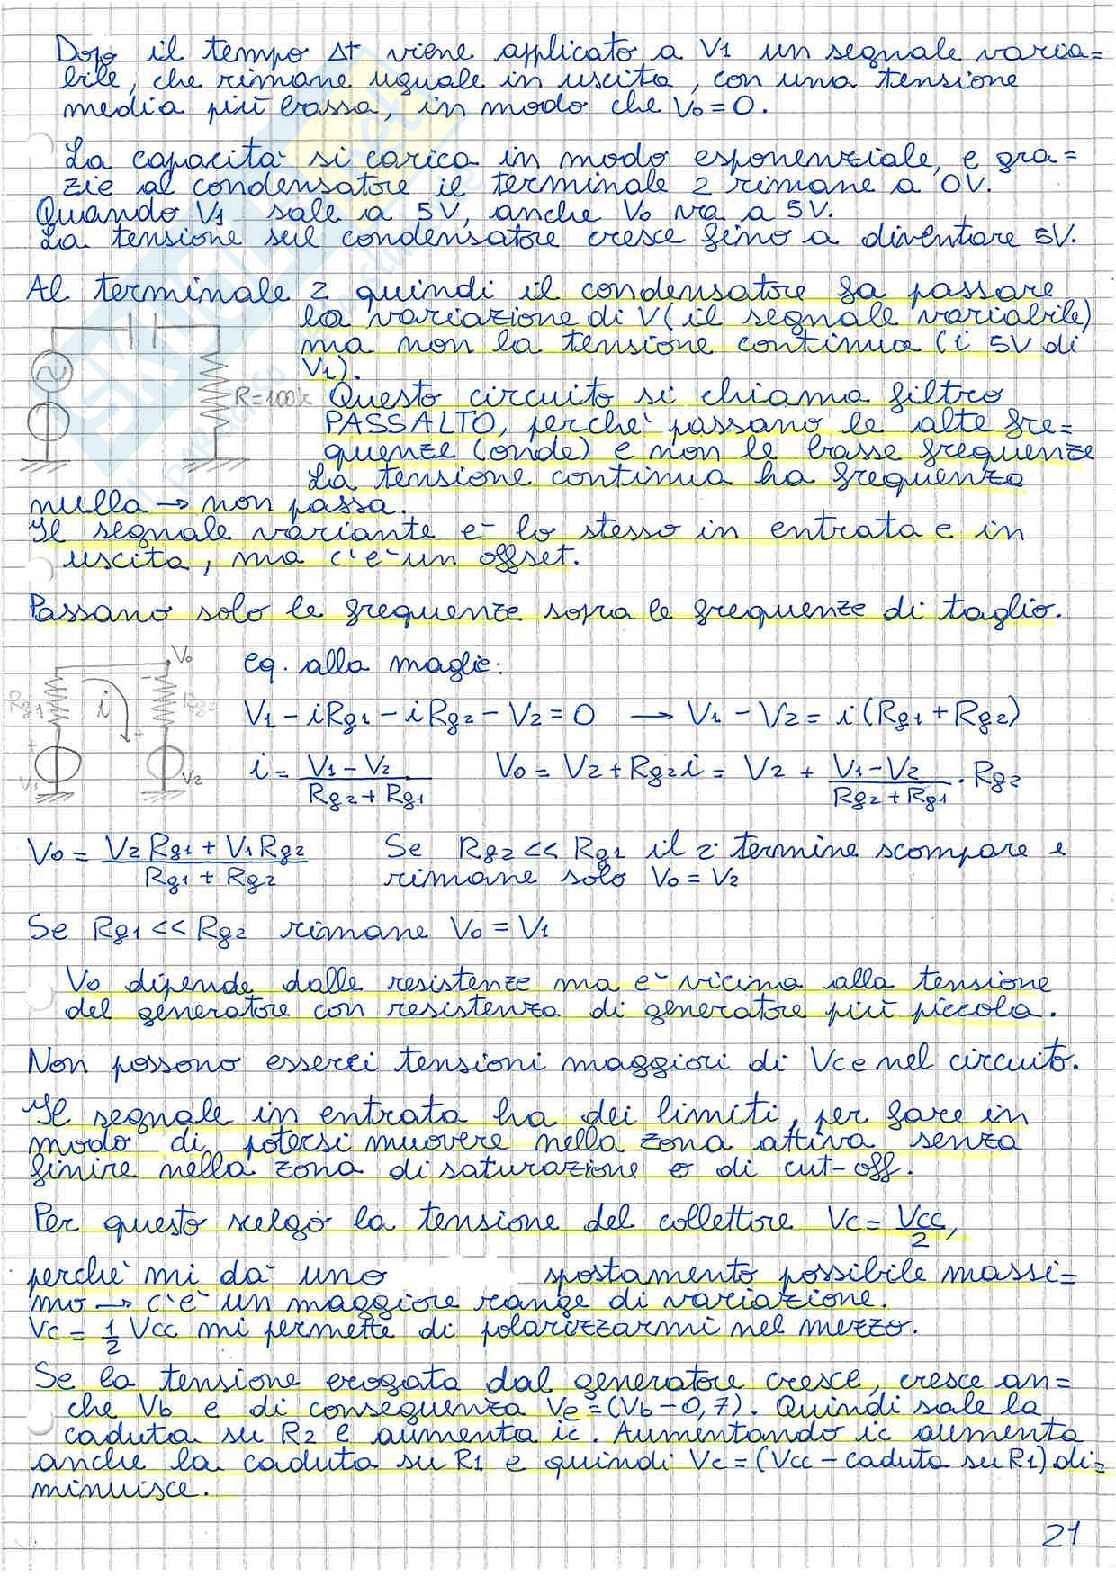 Dopo il tempo Δt viene applicato a V1 un segnale varia=
bile, che rimane uguale in uscita, con una tensione
media più bassa, in modo che Vo=0.
La capacità si carica in modo esponenziale, e gra=
zie al condensatore il terminale 2 rimane a 0V.
Quando V1 sale a 5V, anche Vo va a 5V.
La tensione sul condensatore cresce fino a diventare 5V.
Al terminale 2 quindi il condensatore fa passare
la variazione di V (il segnale variabile)
ma non la tensione continua (i 5V di
V1).
R=100k
Questo circuito si chiama filtro
PASSALTO, perché passano le alte fre=
quenze (onde) e non le basse frequenze
La tensione continua ha frequenza
nulla → non passa.
Il segnale variante è lo stesso in entrata e in
uscita, ma c'è un offset.
Passano solo le frequenze sopra le frequenze di taglio.
Vo
eq. alla maglie:
Rg1
i
Rg2
V1 - iRg1 - iRg2 - V2 = 0 → V1 - V2 = i(Rg1 + Rg2)
V1
V2
i = V1 - V2 / Rg2 + Rg1 Vo = V2 + Rg2 i = V2 + V1 - V2 / Rg2 + Rg1 · Rg2
Vo = V2 Rg1 + V1 Rg2 / Rg1 + Rg2 Se Rg2 << Rg1 il 2° termine scompare e
rimane solo Vo = V2
Se Rg1 << Rg2 rimane Vo = V1
Vo dipende dalle resistenze ma è vicina alla tensione
del generatore con resistenza di generatore più piccola.
Non possono esserci tensioni maggiori di Vcc nel circuito.
Il segnale in entrata ha dei limiti, per fare in
modo di potersi muovere nella zona attiva senza
finire nella zona di saturazione o di cut-off.
Per questo scelgo la tensione del collettore Vc = Vcc/2,
perché mi dà uno spostamento possibile massi=
mo → c'è un maggiore range di variazione.
Vc = 1/2 Vcc mi permette di polarizzarmi nel mezzo.
Se la tensione erogata dal generatore cresce, cresce an=
che Vb e di conseguenza Ve = (Vb - 0,7). Quindi sale la
caduta su R2 e aumenta ic. Aumentando ic aumenta
anche la caduta su R1 e quindi Vc = (Vcc - caduta su R1) di=
minuisce.
21